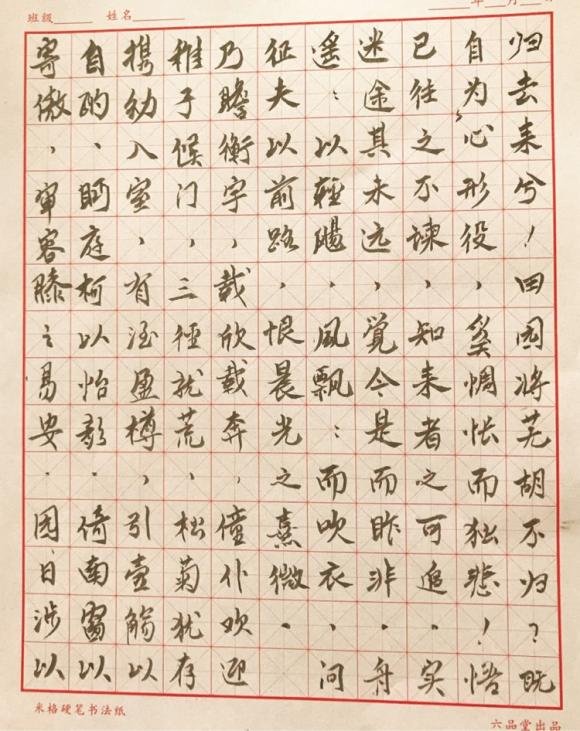 班级 姓名 年 月
归去来兮！田园将芜胡不归？既
自为心形役，奚惆怅而独悲！悟
已往之不谏，知来者之可追。实
迷途其未远，觉今是而昨非。舟
遥：以輕颺，風飘：而吹衣。问
征夫以前路，恨晨光之熹微。
乃瞻衡宇，载欣载奔，僮仆欢迎
稚子候门，三径就荒，松菊犹存
携幼入室，有酒盈樽，引壶觞以
自酌、眄庭柯以怡颜。倚南窗以
寄傲，审容膝之易安。园日涉以
米格硬笔书法纸
六品堂出品